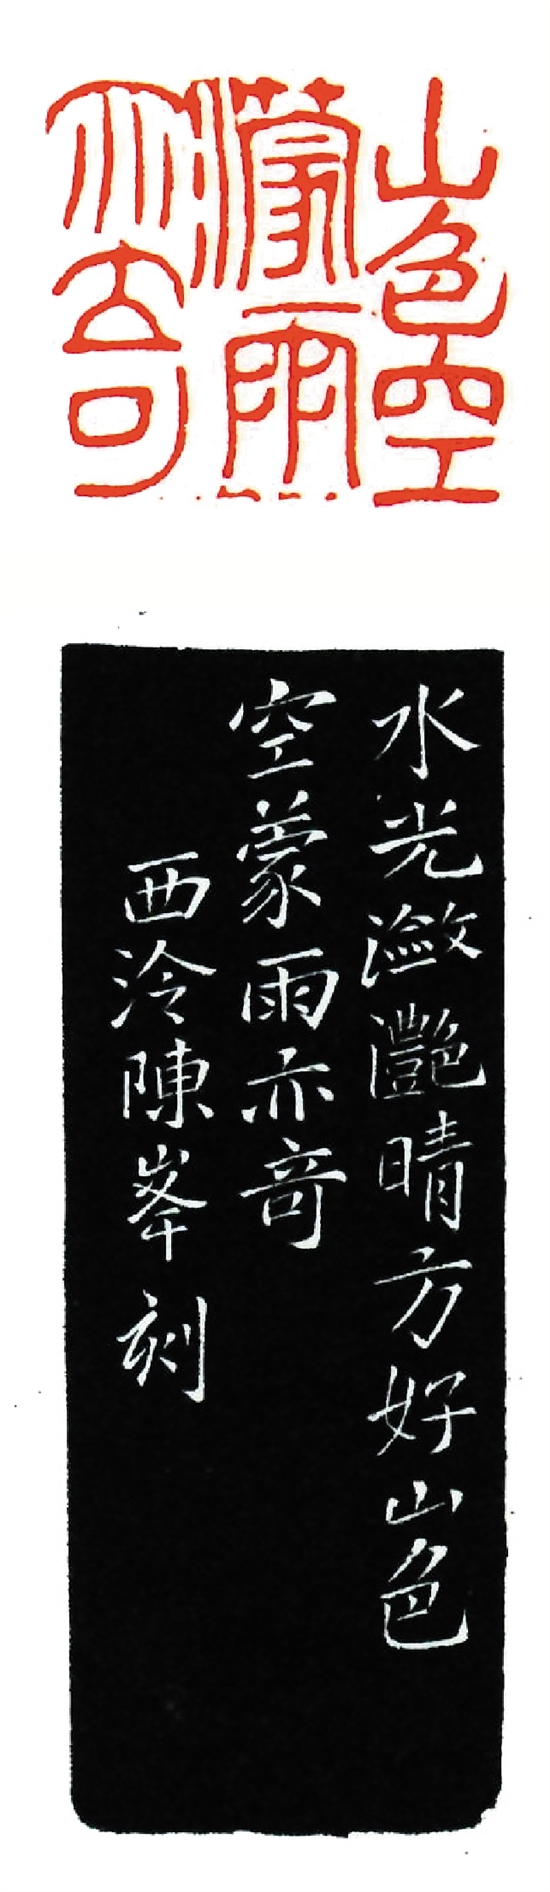 山色空
濛雨
亦奇
水光瀲灧晴方好山色
空蒙雨亦奇
西泠陳峯刻